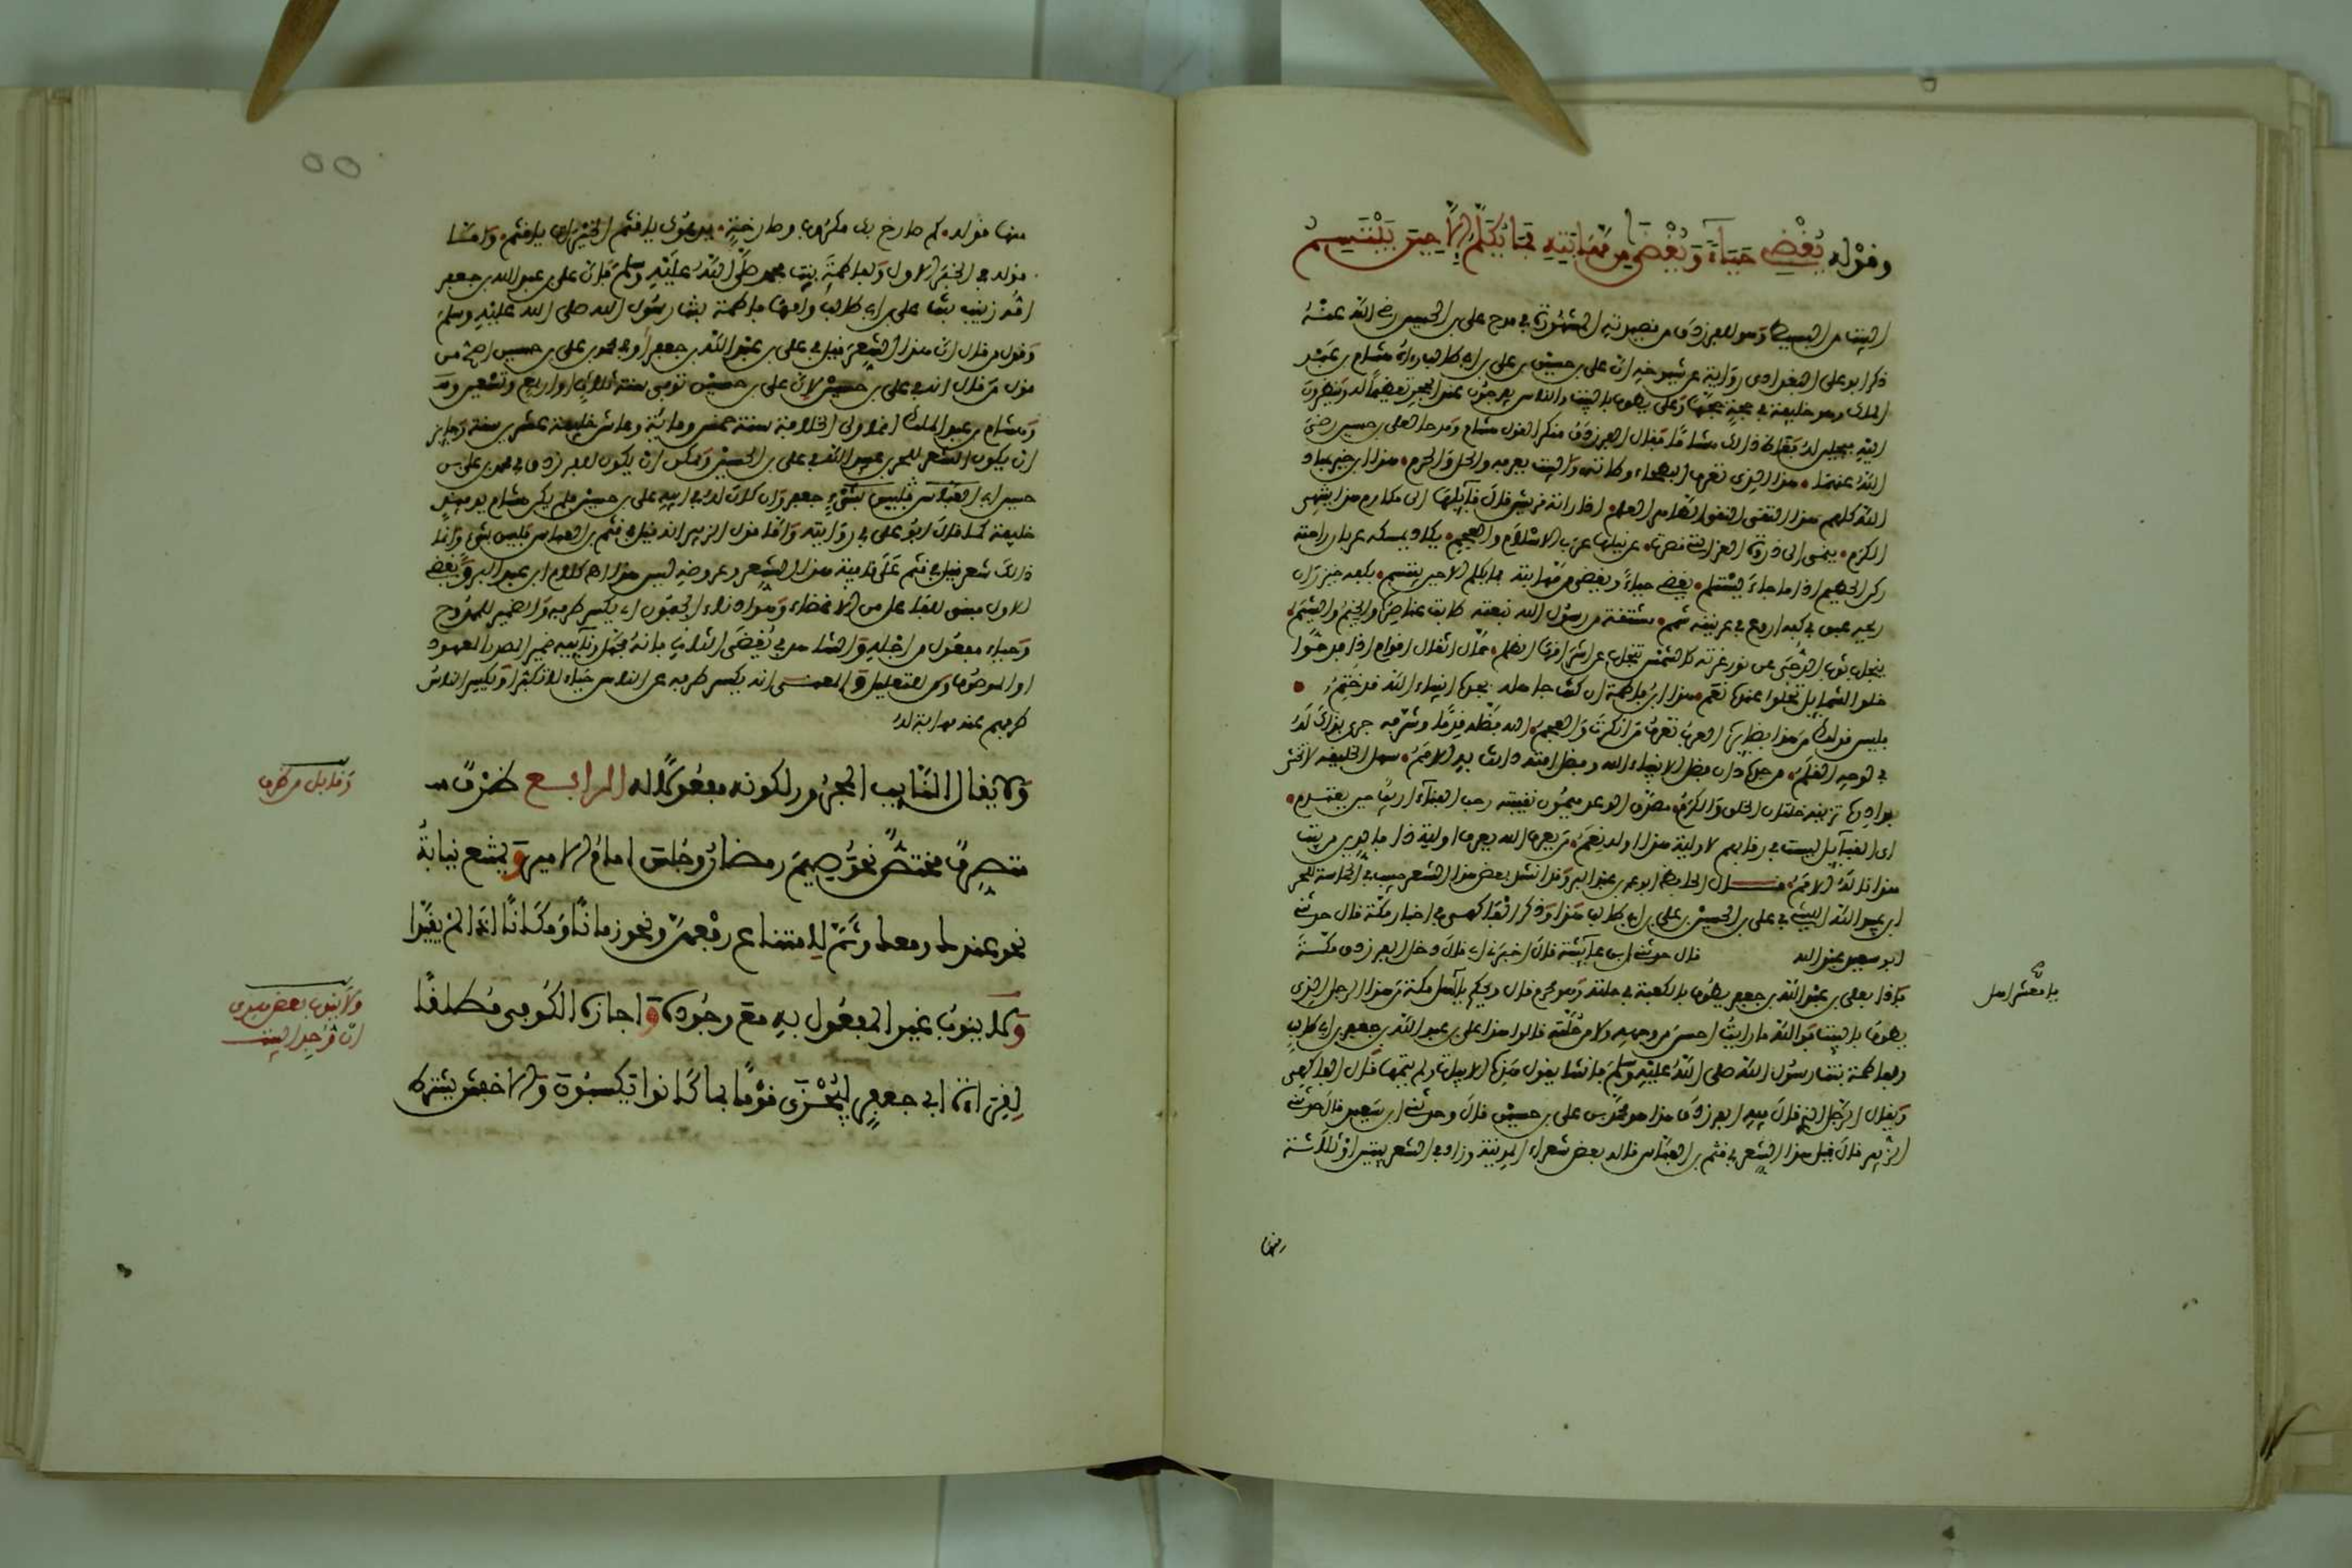 وقوله يُغْضِي حَيَاءً وَيُغْضَى مِن مَّهَابَتِهِ فَمَا يُكَلَّمُ إِلاَّ حِينَ يَبْتَسِمُ
البيت من البسيط وهو للفرزدق من قصيدته المشهورة في مدح علي بن الحسين رضي الله عنه
ذكر ابو علي البغدادي رواية عن شيوخه ان علي بن حسين بن علي بن ابي طالب رءاه هشام بن عبد
الملك وهو خليفة في حجة حجها وعلي يطوف بالبيت والناس يفرجون عند الحجر تعظيما له وينظرون
اليه
الله عنهما هذا الذي تعرف البطحاء وطاته والبيت يعرفه والحل والحرم هذا ابن خير عباد
الله كلهم هذا التقي النقي الطاهر العلم اذا راته قريش قال قائلها الى مكارم هذا ينتهي
الكرم ينمى الى ذروة العز التي قصرت عن نيلها عرب الاسلام والعجم يكاد يمسكه عرفان راحته
ركن الحطيم اذا ما جاء يستلم يغضي حياء ويغضى من مهابته فما يكلم الا حين يبتسم بكفه خيزران
ريحه عبق في كف اروع في عرنينه شمم مشتقة من رسول الله نبعته طابت عناصره والخيم والشيم
ينجاب ثوب الدجى عن نور غرته كالشمس تنجاب عن اشراقها الظلم حمال اثقال اقوام اذا فدحوا
حلو الشمايل تحلوا عنده نعم هذا ابن فاطمة ان كنت جاهله بجده انبياء الله قد ختموا
فليس قولك من هذا بضايره العرب تعرف من انكرت والعجم الله فضله قدما وشرفه جرى بذاك له
في لوحه القلم من جده دان فضل الانبياء له وفضل امته دانت له الامم سهل الخليقة لا تخشى
بوادره تزينه خلتان الخلق والكرم ميمون نقيبته رحب الفناء اريب حين يعتزم
اي القبايل ليست في رقابهم لاولية هذا او له نعم من يعرف الله يعرف اولية ذا فالدين من بيت
هذا ناله الامم قال الحافظ ابو عمر بن عبد البر وقد انشد بعض هذا الشعر حبيب في الحماسة للحزين
ابن عبد الله الليثي في علي بن الحسين بن علي بن ابي طالب هذا وذكر الفاكهي في اخبار مكة قال حدثني
ابو سعيد عبد الله قال حدثني ابن عايشة قال اخبرني ابي قال دخل الفرزدق مكة
فاذا بعلي بن عبد الله بن جعفر يطوف بالكعبة في حلته وهو محرم فقال ويحكم يا اهل مكة من هذا الرجل الذي
يا معشر اهل
يطوف بالبيت فوالله ما رايت احسن من وجهه ولا من حلته قالوا هذا علي بن عبد الله بن جعفر بن ابي طالب
وفاطمة بنت رسول الله صلى الله عليه وسلم فانشا يقول هذه الابيات ولم يتمها قال الفاكهي
ويقال الرجل الذي قال فيه الفرزدق هذا هو محمد بن علي بن حسين قال وحدثني ابن سعيد قال حدثني
الزبير قال قيل هذا الشعر في قثم بن العباس قاله بعض شعراء المدينة وزاد في الشعر بيتين او ثلاثة
منها
منها قوله كم صارخ بك مكروب وصارخة يدعوك يا قثم الخيرات يا قثم
قوله في الخبر الاول وفاطمة بنت محمد صلى الله عليه وسلم فان علي بن عبد الله بن جعفر
امه زينب بنت علي بن ابي طالب وامها فاطمة بنت رسول الله صلى الله عليه وسلم
وقول من قال ان هذا الشعر قيل في علي بن عبد الله بن جعفر او في محمد بن علي بن حسين اصح من
قول من قال انه في علي بن حسين لان علي بن حسين توفي سنة ثلاث او اربع وتسعين
وهشام بن عبد الملك انما ولي الخلافة سنة خمس ومائة وعاش خليفة عشرين سنة وجايز
ان يكون الشعر للحزين عبد الله في علي بن الحسين ويمكن ان يكون للفرزدق في محمد بن علي بن
حسين
خليفة كما قال ابو علي في روايته واما قول الزبير انه قيل في قثم بن العباس فليس بشيء وانما
ذلك شعر قيل في قثم على قافية هذا الشعر وعروضه ليس هذا اهـ كلام ابن عبد البر ويغضي
الاول مبني للفاعل من الاغضاء وهو ادناء الجفون اي يكسر طرفه والضمير للممدوح
وحياء مفعول من اجله والشاهد في يغضى الثاني فانه مجهول ونايبه ضمير المصدر المعهود
او الموصوف ومن للتعليل والمعنى انه يكسر طرفه عن الناس حياء لا تكبرا ويكسر الناس
طرفهم عنه مهابة له
وَلا يقال النايب المجرور لكونه مفعولاً له الرابع ظرف
وقابل من ظرف
متصرف مختص نحو صيم رمضان وجلس امام الامير ويمتنع نيابة
نحو عندك ومعك وثم لامتناع رفعهن ونحو زمانا ومكانا اذا لم يقيدا
ولا ينوب غير المفعول به مع وجوده واجازه الكوفي مطلقا
ولا ينوب بعض هذي
ان وجد البيت
لقراءة ابي جعفر لِيُجْزَى قومًا بما كانوا يكسبون والاخفش بشرط